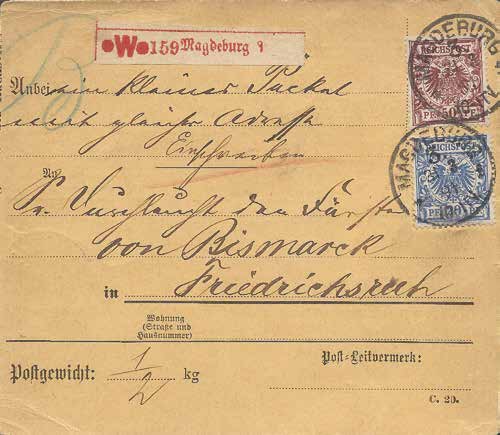 W 159 Magdeburg 9
Anbei ein kleines Packet
mit gleicher Adresse
Einschreiben
An
Sr. Durchlaucht den Fürsten
von Bismarck
in Friedrichsruh
Wohnung
(Straße und
Hausnummer)
Postgewicht: 1/2 kg
Post-Leitvermerk:
C. 20.
REICHSPOST
50
MAGDEBURG
REICHSPOST
20
MAGDEBURG